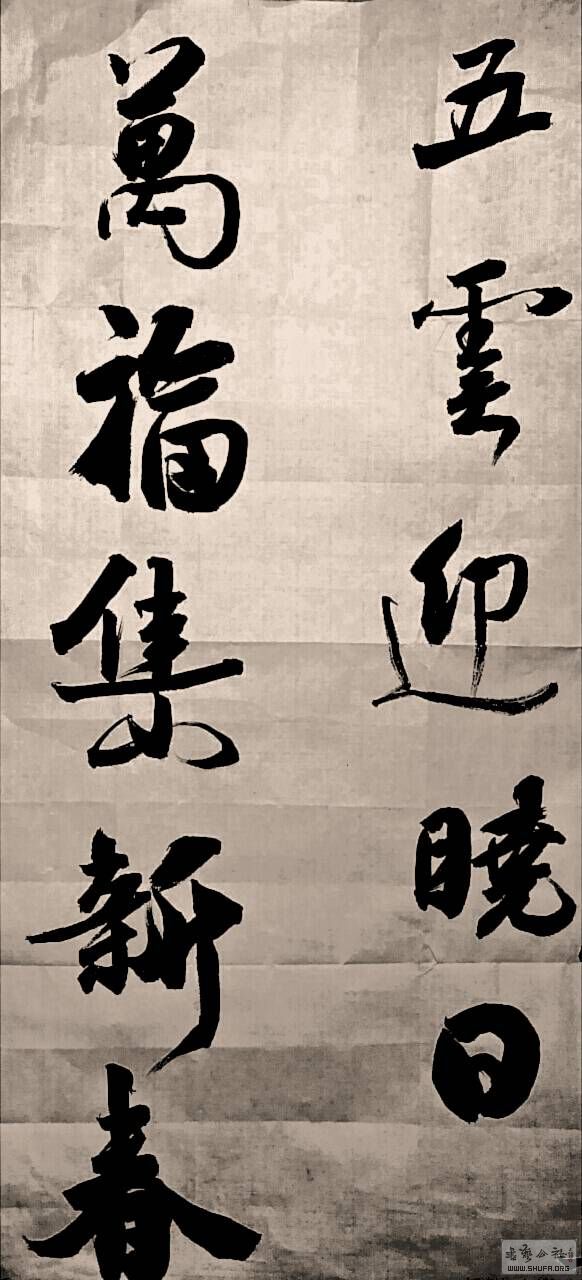 五雲迎曉日
萬福集新春
書法公社
WWW.SHUFA.ORG